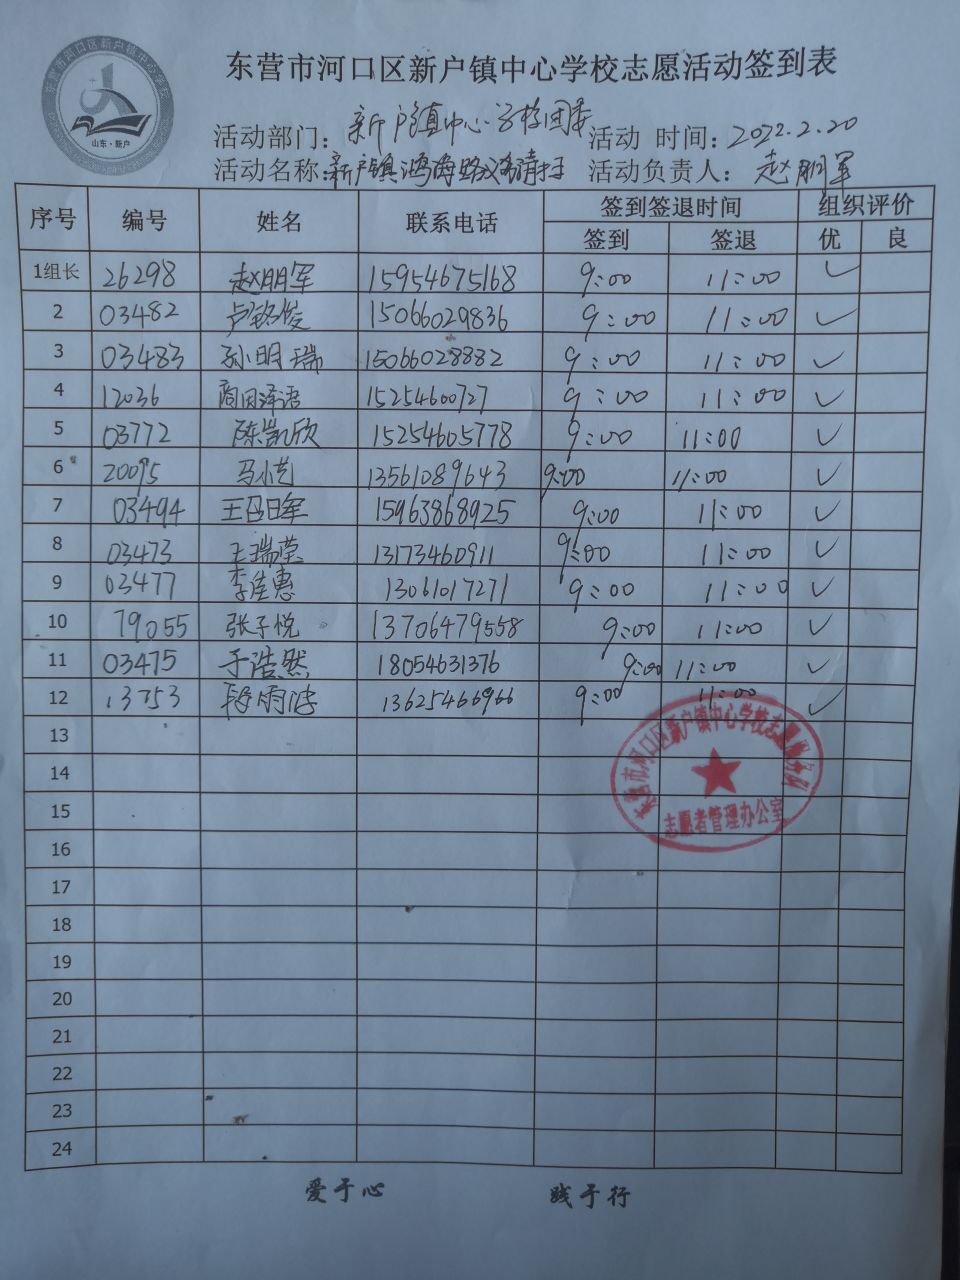 东营市河口区新户镇中心学校志愿活动签到表
东营市河口区新户镇中心学校
山东·新户
活动部门：新户镇中心学校团委 活动 时间：2022.2.20
活动名称：新户镇鸿海路 活动负责人：赵朋军
序号 编号 姓名 联系电话 签到签退时间 组织评价
签到 签退 优 良
1组长 26298 赵朋军 15954675168 9:00 11:00 ✓
2 03482 卢铭俊 15066029836 9:00 11:00 ✓
3 03483 孙明瑞 15066028882 9:00 11:00 ✓
4 12036 商田泽语 15254600727 9:00 11:00 ✓
5 03772 陈凯欣 15254605778 9:00 11:00 ✓
6 20095 马小艺 13561089643 9:00 11:00 ✓
7 03494 王召军 15963868925 9:00 11:00 ✓
8 03473 王瑞莹 13173460911 9:00 11:00 ✓
9 03477 李佳惠 13061017271 9:00 11:00 ✓
10 79055 张子悦 13706479558 9:00 11:00 ✓
11 03475 于浩然 18054631376 9:00 11:00 ✓
12 13753 雨 13625466966 9:00 11:00 ✓
13
14
15
16
17
18
19
20
21
22
23
24
东营市河口区新户镇中心学校志愿服务队
志愿者管理办公室
爱于心 践于行